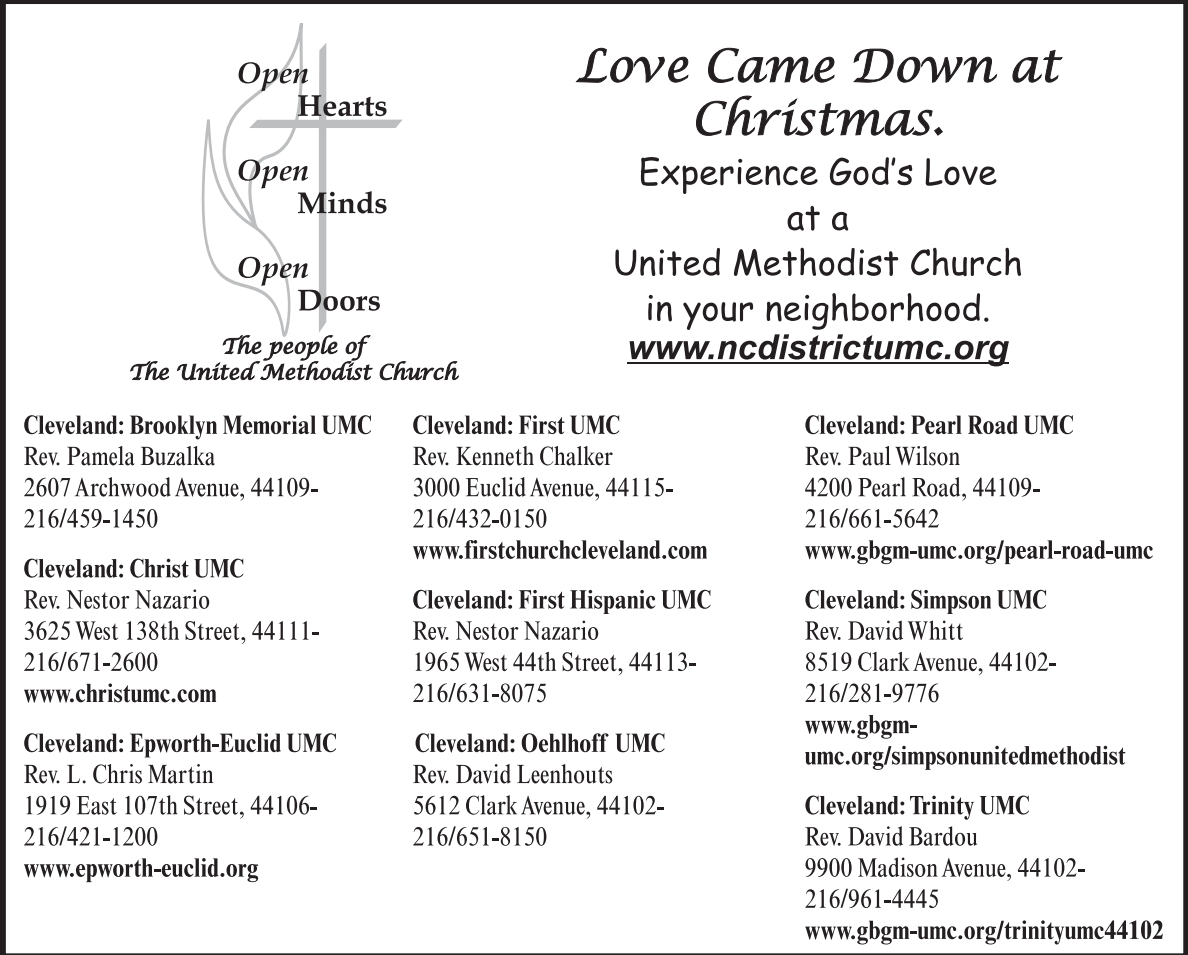 Open
Hearts
Open
Minds
Open
Doors
The people of
The United Methodist Church
Love Came Down at
Christmas.
Experience God's Love
at a
United Methodist Church
in your neighborhood.
www.ncdistrictumc.org
Cleveland: Brooklyn Memorial UMC
Rev. Pamela Buzalka
2607 Archwood Avenue, 44109-
216/459-1450
Cleveland: Christ UMC
Rev. Nestor Nazario
3625 West 138th Street, 44111-
216/671-2600
www.christumc.com
Cleveland: Epworth-Euclid UMC
Rev. L. Chris Martin
1919 East 107th Street, 44106-
216/421-1200
www.epworth-euclid.org
Cleveland: First UMC
Rev. Kenneth Chalker
3000 Euclid Avenue, 44115-
216/432-0150
www.firstchurchcleveland.com
Cleveland: First Hispanic UMC
Rev. Nestor Nazario
1965 West 44th Street, 44113-
216/631-8075
Cleveland: Oehlhoff UMC
Rev. David Leenhouts
5612 Clark Avenue, 44102-
216/651-8150
Cleveland: Pearl Road UMC
Rev. Paul Wilson
4200 Pearl Road, 44109-
216/661-5642
www.gbgm-umc.org/pearl-road-umc
Cleveland: Simpson UMC
Rev. David Whitt
8519 Clark Avenue, 44102-
216/281-9776
www.gbgm-
umc.org/simpsonunitedmethodist
Cleveland: Trinity UMC
Rev. David Bardou
9900 Madison Avenue, 44102-
216/961-4445
www.gbgm-umc.org/trinityumc44102